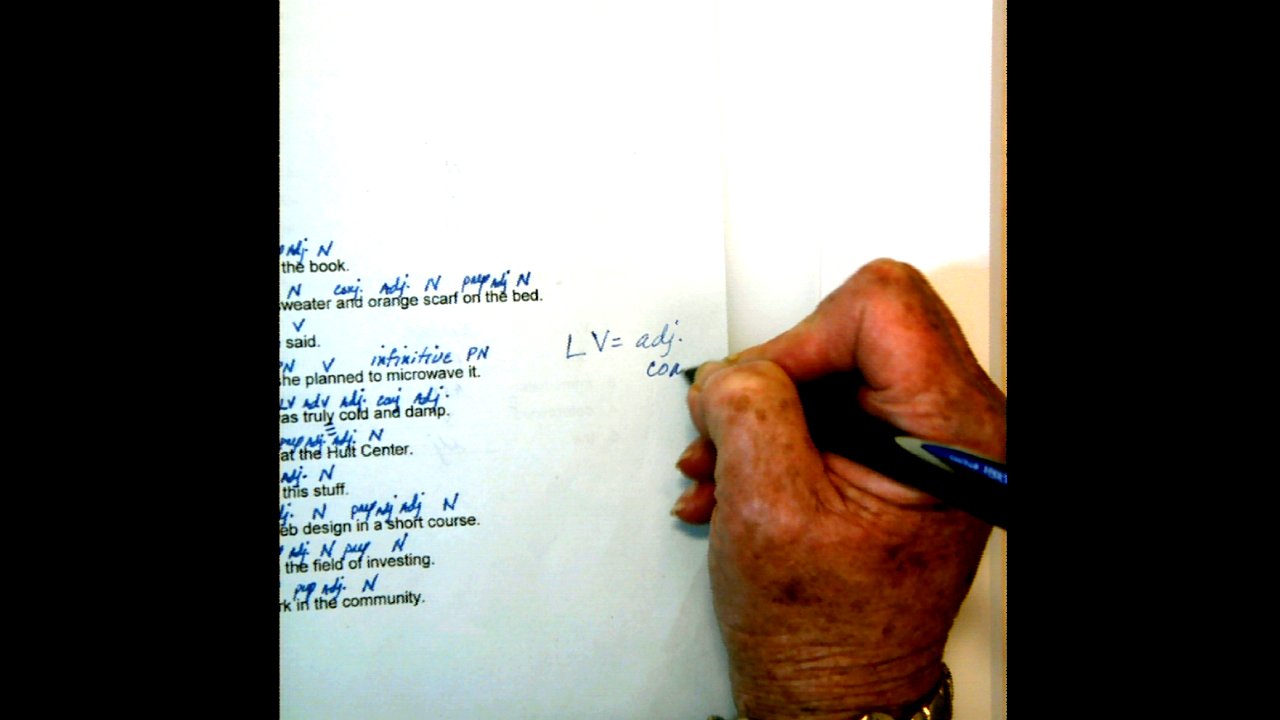 adj. N
the book.
N conj. adj. N prep adj N
sweater and orange scarf on the bed.
V
said.
PN V infinitive PN
she planned to microwave it.
LV adv adj. conj adj.
as truly cold and damp.
prep adj. adj. N
at the Hult Center.
adj. N
this stuff.
N prep adj adj N
eb design in a short course.
adj. N prep N
the field of investing.
prep adj. N
rk in the community.
LV = adj.
con